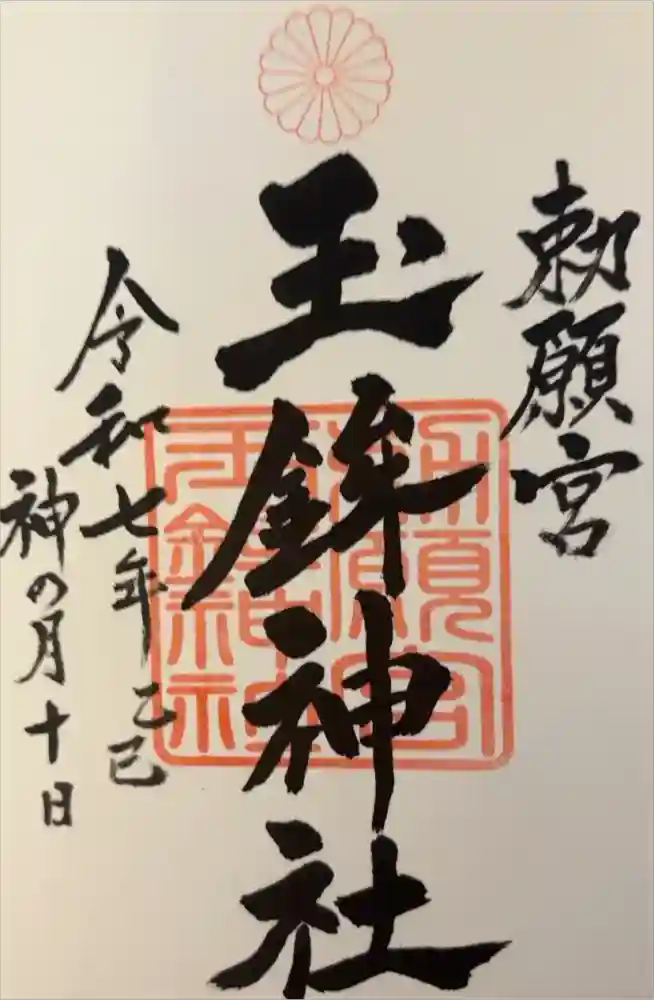 勅願宮
玉鉾神社
令和七年乙巳
神の月十日
勅願宮
玉鉾神社